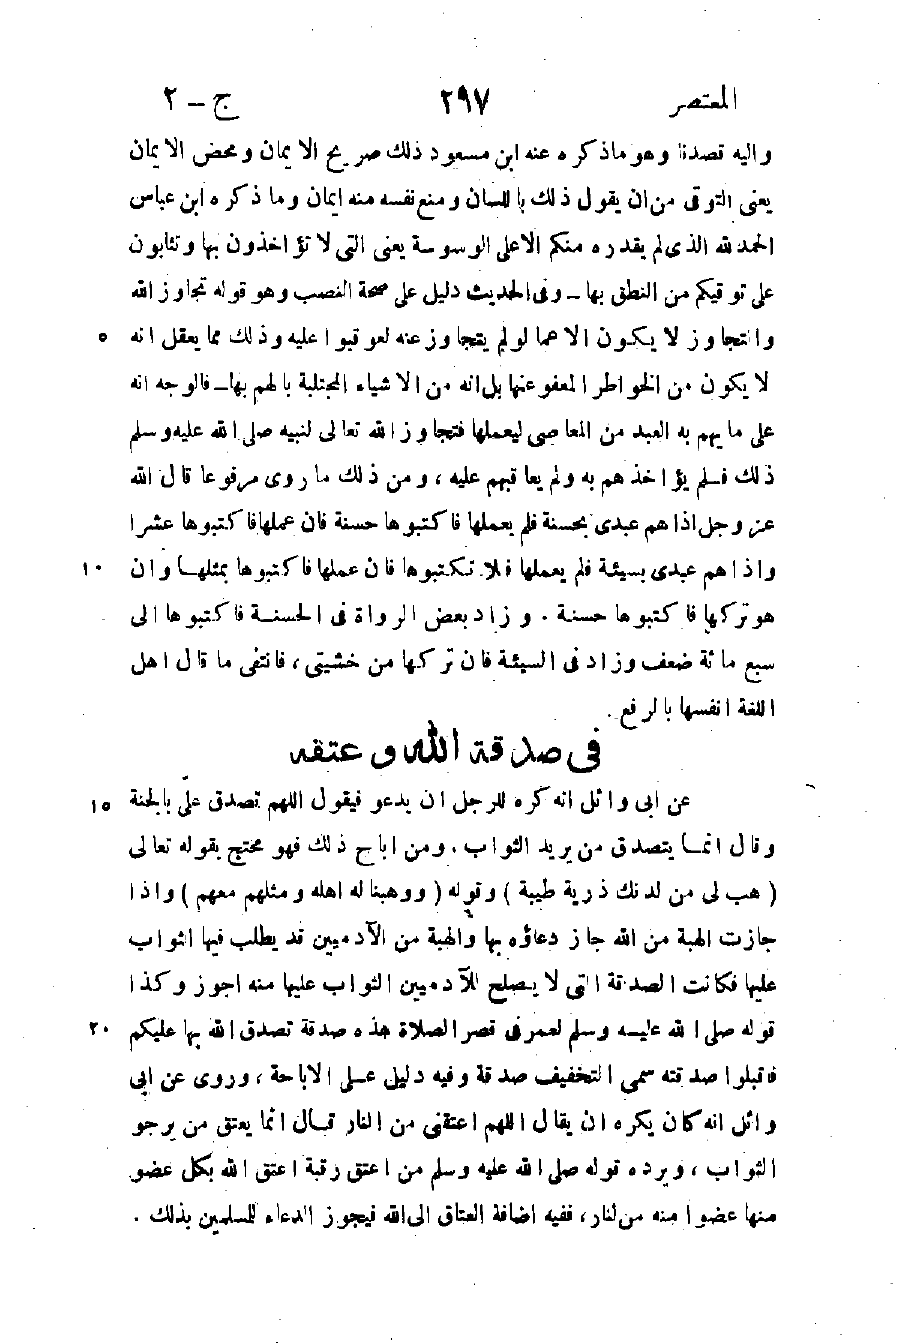 المعتصر ٢٩٧ ج – ٢
واليه قصدنا وهو ماذكره عنه ابن مسعود ذلك صريح الايمان ومحض الايمان
يعنى التوقى من ان يقول ذلك باللسان ومنع نفسه منه ايمان وما ذكره ابن عباس
الحمد لله الذى لم يقدره منكم الاعلى الوسوسة يعنى التى لا تؤاخذون بها وتثابون
على توقيكم من النطق بها – وفى الحديث دليل على صحة النصب وهو قوله تجاوز الله
والتجاوز لا يكون الا عما لو لم يتجاوز عنه لعوقبوا عليه وذلك مما يعقل انه ٥
لا يكون من الخواطر المعفو عنها بل انه من الاشياء المجتلبة بالهم بها – فالوجه انه
على ما يهم به العبد من المعاصى ليعملها فتجاوز الله تعالى لنبيه صلى الله عليه وسلم
ذلك فلم يؤاخذهم به ولم يعاقبهم عليه ، ومن ذلك ما روى مرفوعا قال الله
عز وجل اذا هم عبدى بحسنة فلم يعملها فاكتبوها حسنة فان عملها فاكتبوها عشرا
واذا هم عبدى بسيئة فلم يعملها فلا تكتبوها فان عملها فاكتبوها بمثلها وان ١٠
هو تركها فاكتبوها حسنة . وزاد بعض الرواة فى الحسنة فاكتبوها الى
سبع مائة ضعف وزاد فى السيئة فان تركها من خشيتى ، فانتفى ما قال اهل
اللغة انفسها بالرفع .
فى صدقة الله وعتقه
عن ابى وائل انه كره للرجل ان يدعو فيقول اللهم تصدق علىّ بالجنة ١٥
وقال انما يتصدق من يريد الثواب . ومن اباح ذلك فهو محتج بقوله تعالى
( هب لى من لدنك ذرية طيبة ) وقوله ( ووهبنا له اهله ومثلهم معهم ) واذا
جازت الهبة من الله جاز دعاؤه بها والهبة من الآدميين قد يطلب فيها الثواب
عليها فكانت الصدقة التى لا يصلح للآدميين الثواب عليها منه اجوز وكذا
قوله صلى الله عليه وسلم لعمر فى قصر الصلاة هذه صدقة تصدق الله بها عليكم ٢٠
فاقبلوا صدقته سمى التخفيف صدقة وفيه دليل على الاباحة ، وروى عن ابى
وائل انه كان يكره ان يقال اللهم اعتقنى من النار قال انما يعتق من يرجو
الثواب ، ويرده قوله صلى الله عليه وسلم من اعتق رقبة اعتق الله بكل عضو
منها عضوا منه من النار ، ففيه اضافة العتاق الى الله فيجوز الدعاء للمسلمين بذلك .